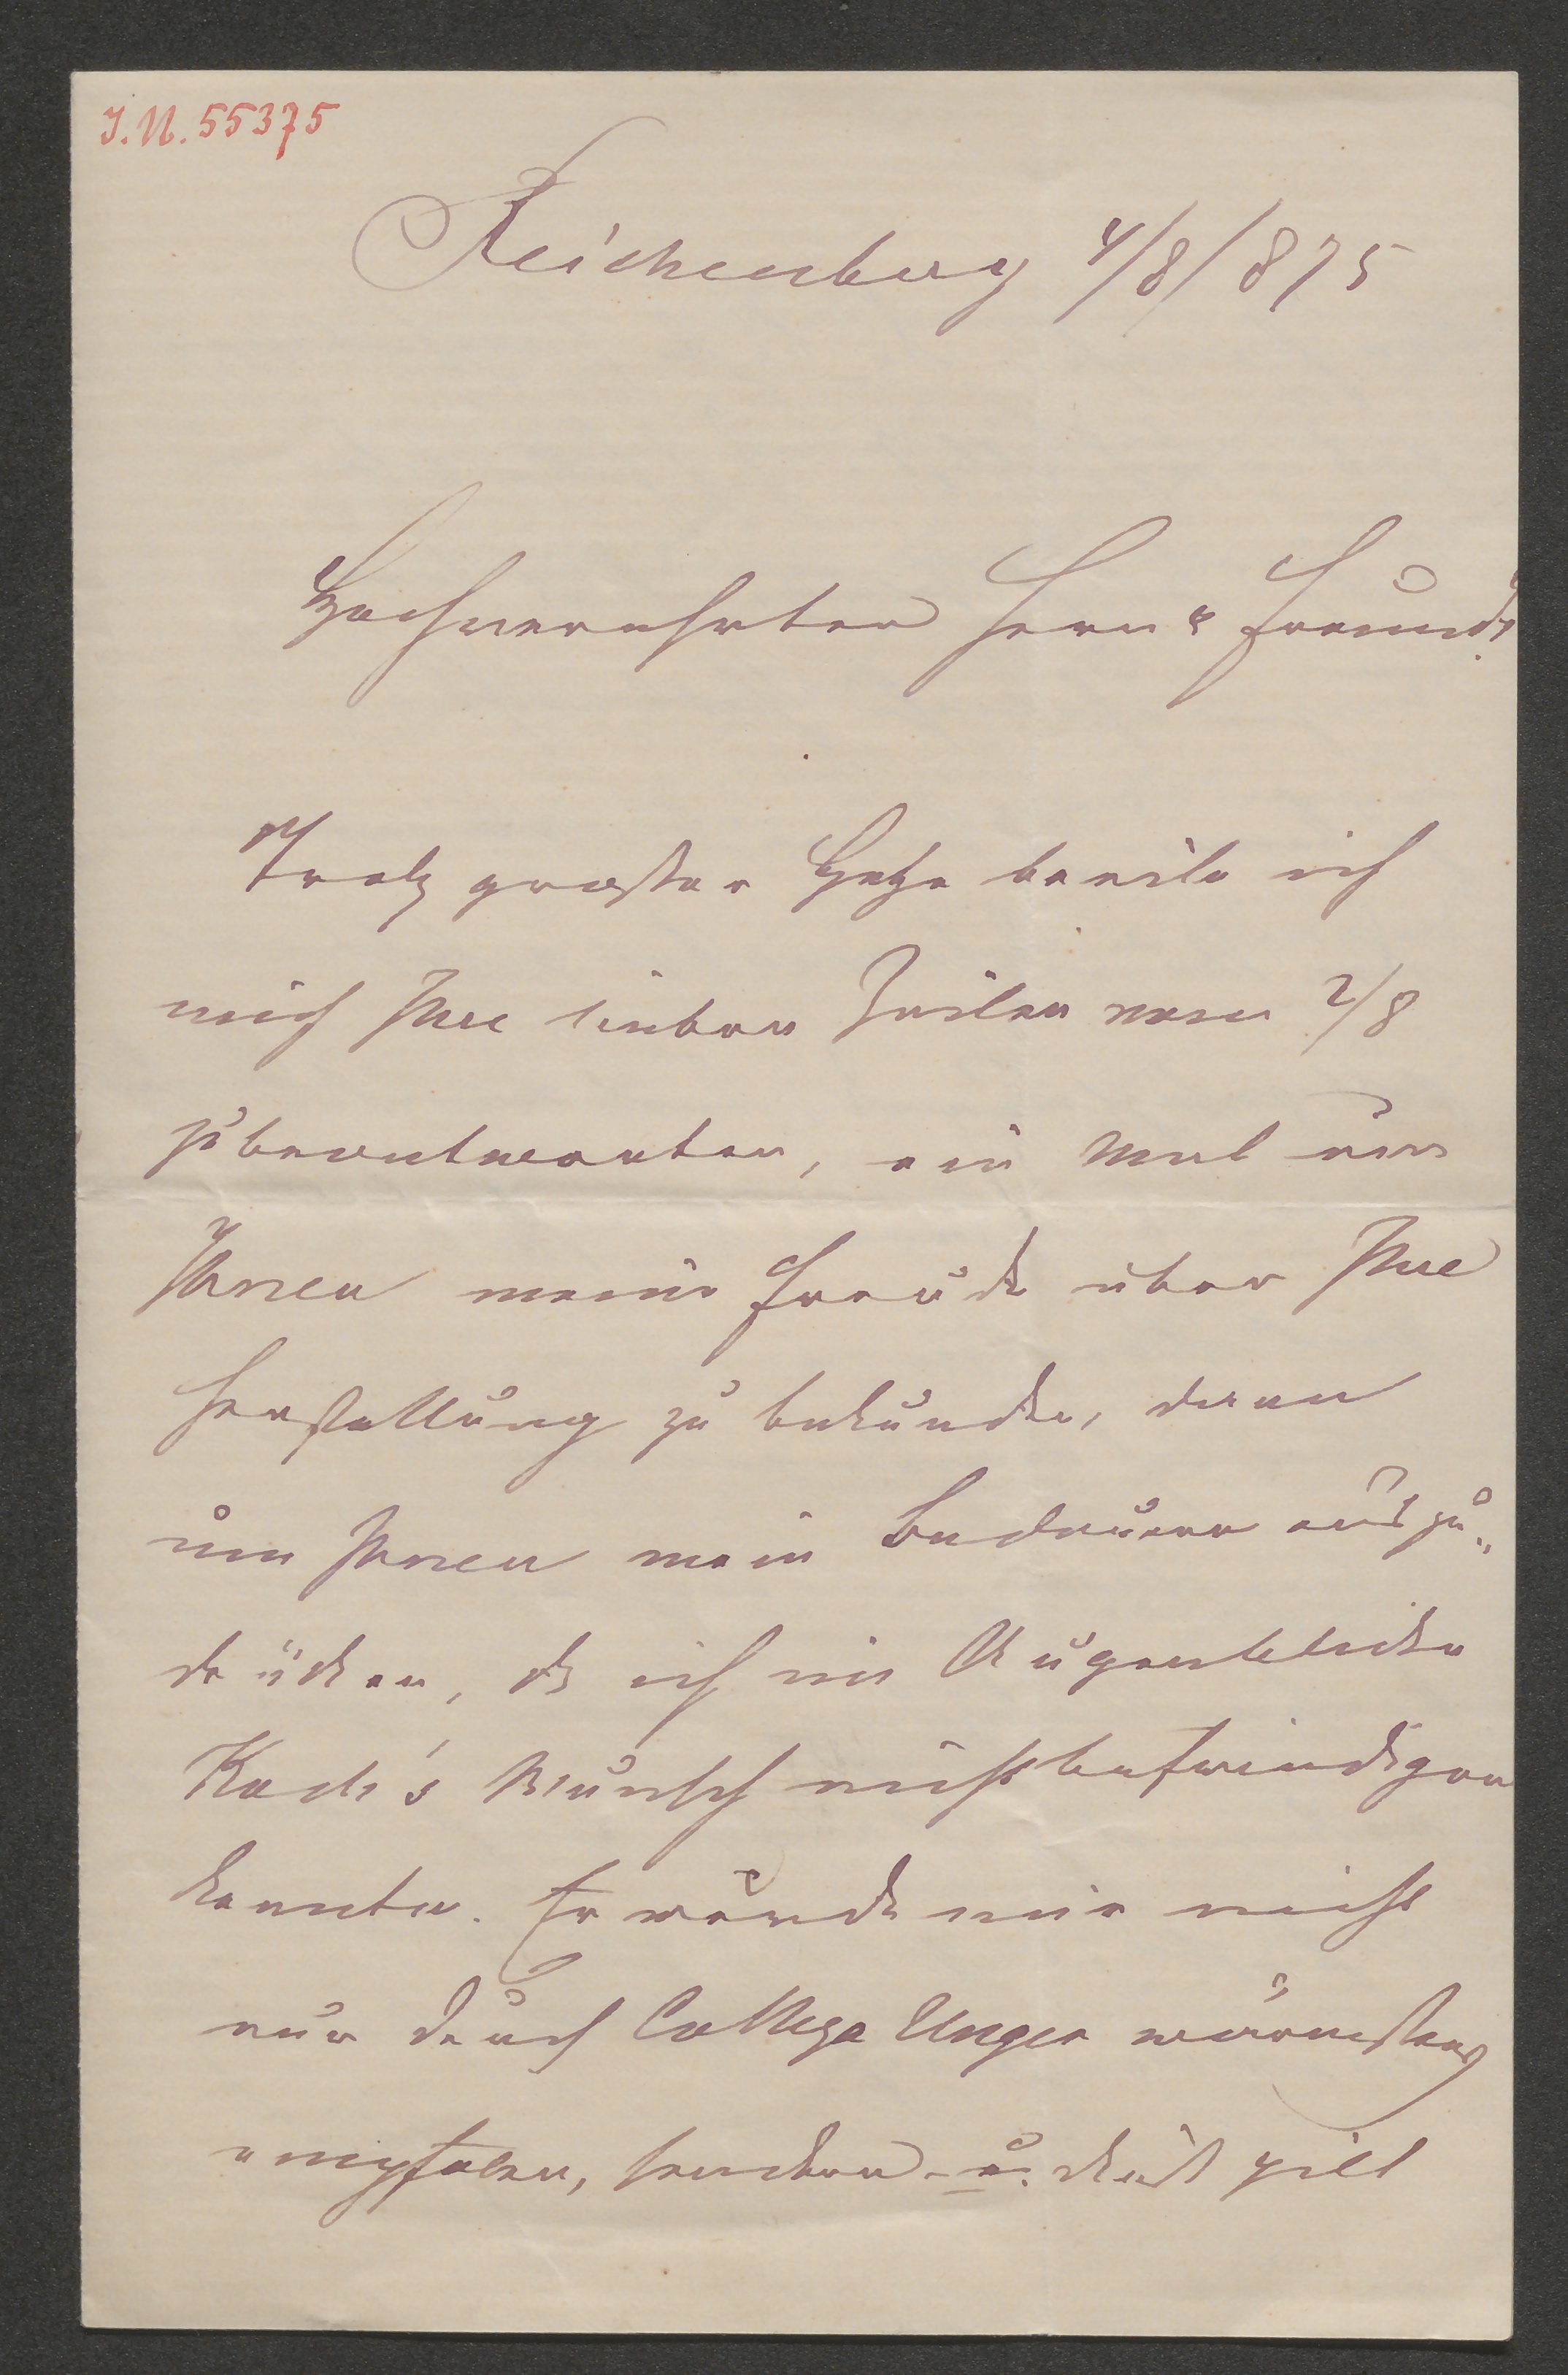 I.N. 55375
Reichenberg 4/8/875
Hochverehrter Herr & Freund!
Trotz großer Hetze beeile ich
mich Ihre lieben Zeilen vom 2/8
zu beantworten, ein Mal um
Ihnen meine Freude über Ihre
Herstellung zu bekunden, dann
um Ihnen mein Bedauern auszu„
drücken, dß ich im Augenblicke
Koch's Wunsch nicht befriedigen
konnte. Er wurde mir nicht
nur durch College Unger wärmstens
empfolen, sondern - u. dieß gilt